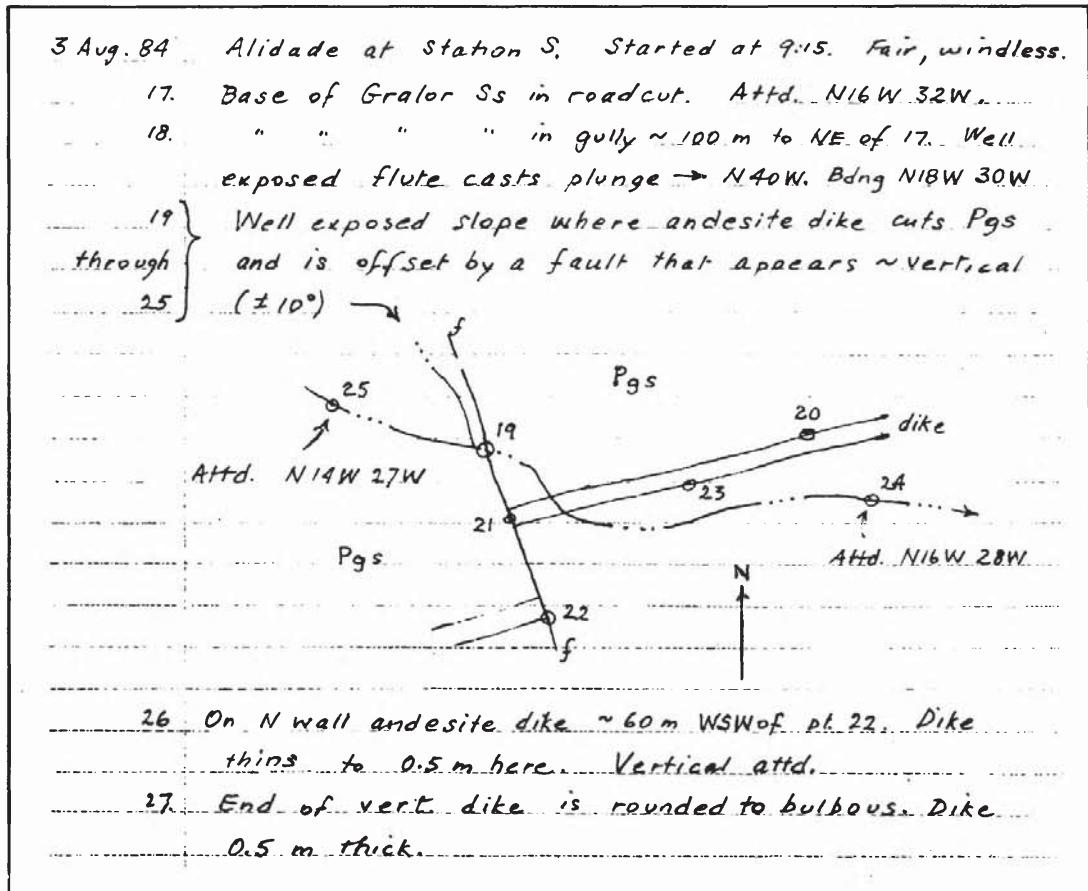 3 Aug. 84 Alidade at Station S. Started at 9:15. Fair, windless.
17. Base of Gralor Ss in roadcut. Attd. N16W 32W.
18. " " " " in gully ~ 100 m to NE of 17. Well
exposed flute casts plunge → N40W. Bdng N18W 30W
19 Well exposed slope where andesite dike cuts Pgs
through and is offset by a fault that appears ~ vertical
25 (± 10°)
f
Pgs
25
20
19
dike
Attd. N14W 27W
23
24
21
Pgs
Attd. N16W 28W
N
22
f
26 On N wall andesite dike ~ 60 m WSW of pt. 22. Dike
thins to 0.5 m here. Vertical attd.
27. End of vert dike is rounded to bulbous. Dike
0.5 m thick.